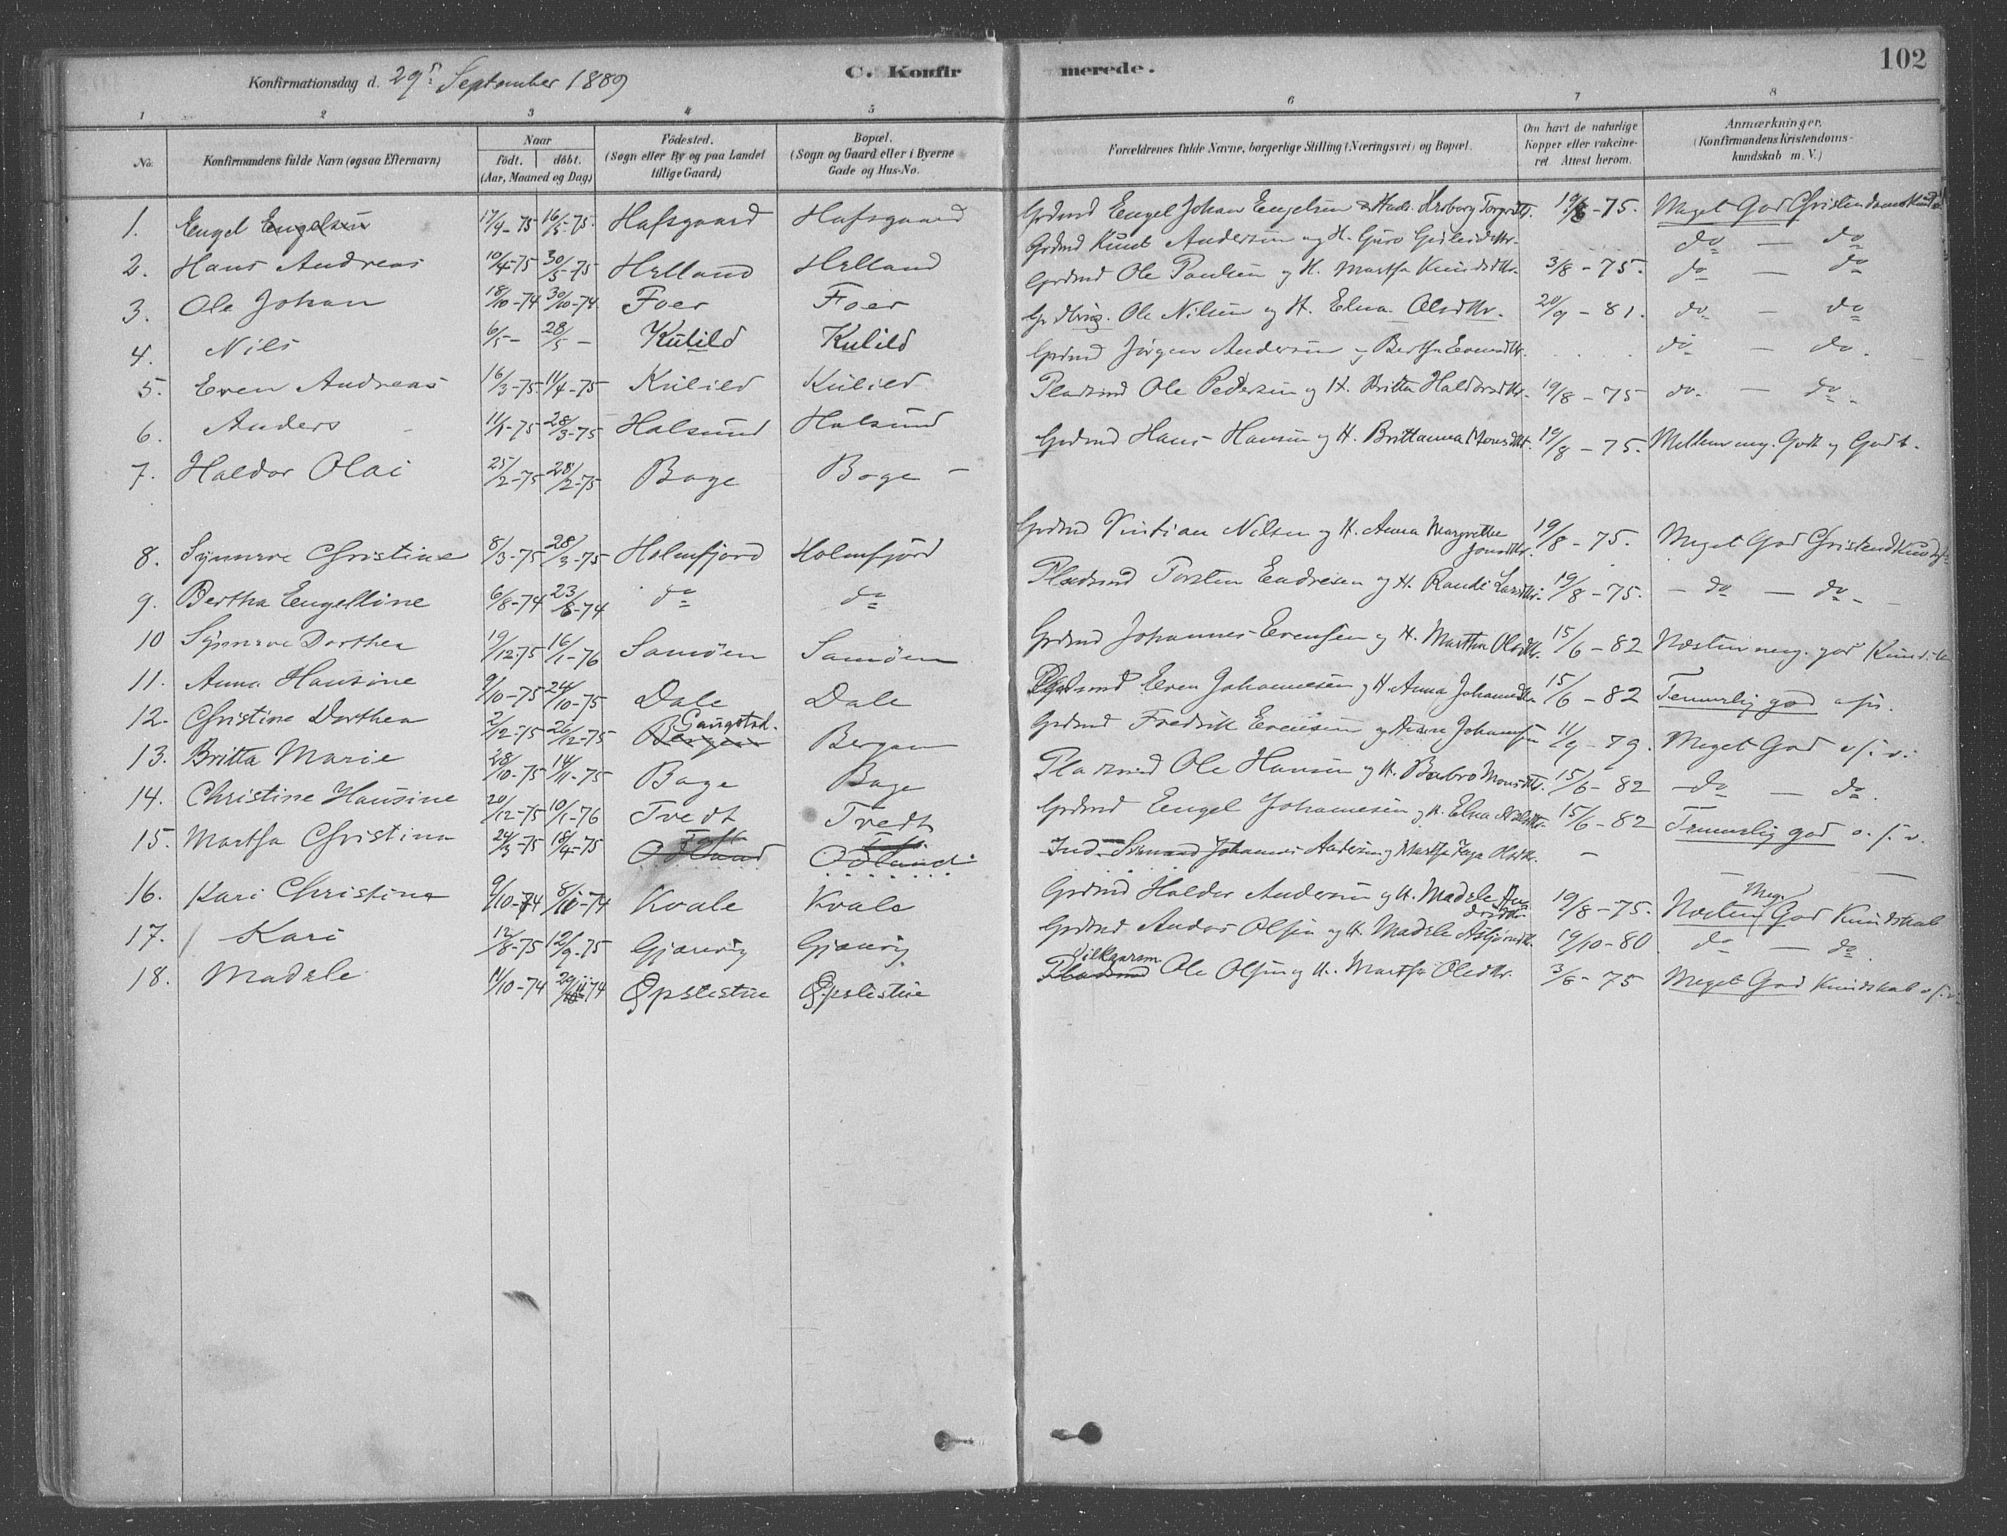 Konfirmationsdag d. 29de September 1889
C. Konfirmerede.
102
1 2 3 4 5 6 7 8
No.
Konfirmandens fulde Navn (ogsaa Efternavn)
Naar
födt. döbt.
(Aar, Maaned og Dag)
Födested.
(Sogn eller By og paa Landet
tillige Gaard)
Bopæl.
(Sogn og Gaard eller i Byerne
Gade og Hus-No.
Forældrenes fulde Navne, borgerlige Stilling (Næringsvei) og Bopæl.
Om havt de naturlige
Kopper eller vakcine-
ret. Attest herom.
Anmærkninger.
(Konfirmandens Kristendoms-
kundskab m. V.)
1. Engel Engelsen 17/4-75 16/5-75. Hafsgaard Hafsgaard Grdmd Engel Johan Engelsen 19/8-75. Meget God Christendomskundsk.
2. Hans Andreas 10/4-75 30/5-75 Helland Helland Grdmd Knut Andersen og H. Guro do — do
3. Ole Johan 18/10-74 30/10-74 Foer Foer Grdmd Ole Paulsen og H. Martha Knudsdtr. 3/8-75. do — do
4. Nils 6/5- 28/5- Kulild Kulild Ole Nilsen og H. Elna Olsdtr. 20/9-81. do — do
5. Even Andreas 16/3-75 11/4-75 Kulild Kulild Grdmd Jörgen Andersen og Bertha do — do.
6. Anders 11/1-75 28/3-75 Halsund Halsund Pladsmd Ole Pedersen og H. Britta Haldorsdtr. 19/8-75 do — do.
7. Haldor Olai 25/2-75 28/2-75 Boge Boge Grdmd Hans Hansen og H. Brittanna Monsdtr. 19/8-75. Mellem meg. Godt og Godt.
8. Synneve Christine 8/3-75 28/3-75 Holmfjord Holmfjord Grdmd Nilsen og H. Anna Margrethe
Jonsdtr. 19/8-75. Meget God Christendkundsk.
9. Bertha Engelline 6/8-74 23/8-74 do do Pladsmd Torsten Endresen og H. Randi Larsdtr. 19/8-75. — do — do —
10 Synneve Dorthea 19/12-75 16/1-76 Samöen Samöen Grdmd Johannes Evensen og H. Martha Olsdtr. 15/6-82 Næsten meg. god Kundsk.
11. Anna Hansine 9/10-75 24/10-75 Dale Dale Pladsmd Even Johannesen og H. Anna Johannesdtr. 15/6-82 Temmelig god o.s.v.
12. Christine Dorthea 2/12-75 26/12-75 Gangstad. Bergem Bergem Grdmd Fredrik Evensen og Anne 11/9-79. Meget God o.s.v.
13. Britta Marie 28/10-75 14/11-75 Boge Boge Pladsmd Ole Hansen og H. Barbro Monsdtr. 15/6-82 — do — do.
14. Christine Hansine 20/12-75 10/1-76 Tvedt Tvedt Grdmd Engel Johannesen og H. Elna 15/6-82 Temmelig god o.s.v.
15. Martha Christina 24/3-75 18/4-75 Odland Odland Ind. Johannes Andersen og Martha Inga Olsdtr. —
16. Kari Christina 9/10-74 8/11-74 Kvale Kvale Grdmd Haldor Andersen og H. Madele 19/8-75. Næsten Meget God Kundskab
17. Kari 12/8-75 12/9-75 Gjervig Gjervig Grdmd Anders Olsen og H. Madele Asbjörnsdtr. 19/10-80 do — do.
18. Madele 11/10-74 29/11-74 Pladsmd Ole Olsen og H. Martha Olsdtr. 3/6-75 Meget God Kundskab o.s.v.